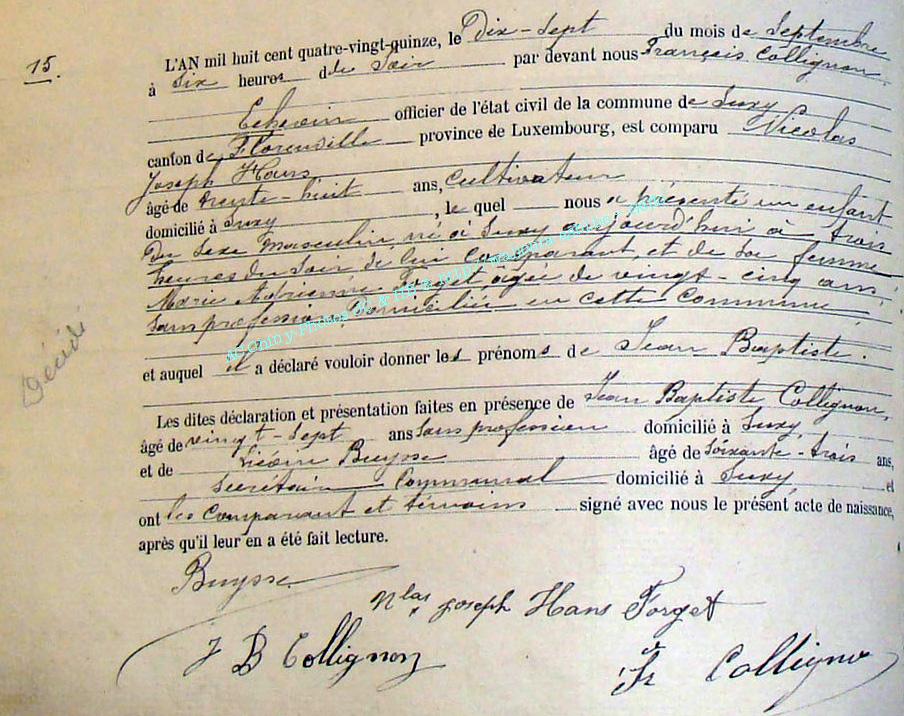 15.
L'AN mil huit cent quatre-vingt-quinze, le Dix-Sept du mois de Septembre
à Six heures du Soir par devant nous François Collignon,
Echevin officier de l'état civil de la commune de Suxy
canton de Florenville province de Luxembourg, est comparu Nicolas
Joseph Hans,
âgé de trente-huit ans, Cultivateur
domicilié à Suxy, le quel nous a présenté un enfant
Du Sexe masculin, né à Suxy aujourd'hui à trois
heures du Soir, de lui Comparant, et de Sa femme
Marie Adrienne Forget, agée de vingt-cinq ans,
Sans profession, Domiciliée en cette Commune
et auquel il a déclaré vouloir donner les prénoms de Jean Baptiste.
Les dites déclaration et présentation faites en présence de Jean Baptiste Collignon,
âgé de vingt-Sept ans Sans profession domicilié à Suxy,
et de Buysse âgé de Soixante-trois ans,
Secrétaire Communal domicilié à Suxy, et
ont les Comparant et témoins signé avec nous le présent acte de naissance,
après qu'il leur en a été fait lecture.
Décédé
Buysse
Nlas Joseph Hans Forget
J B Collignon
Fr Collignon